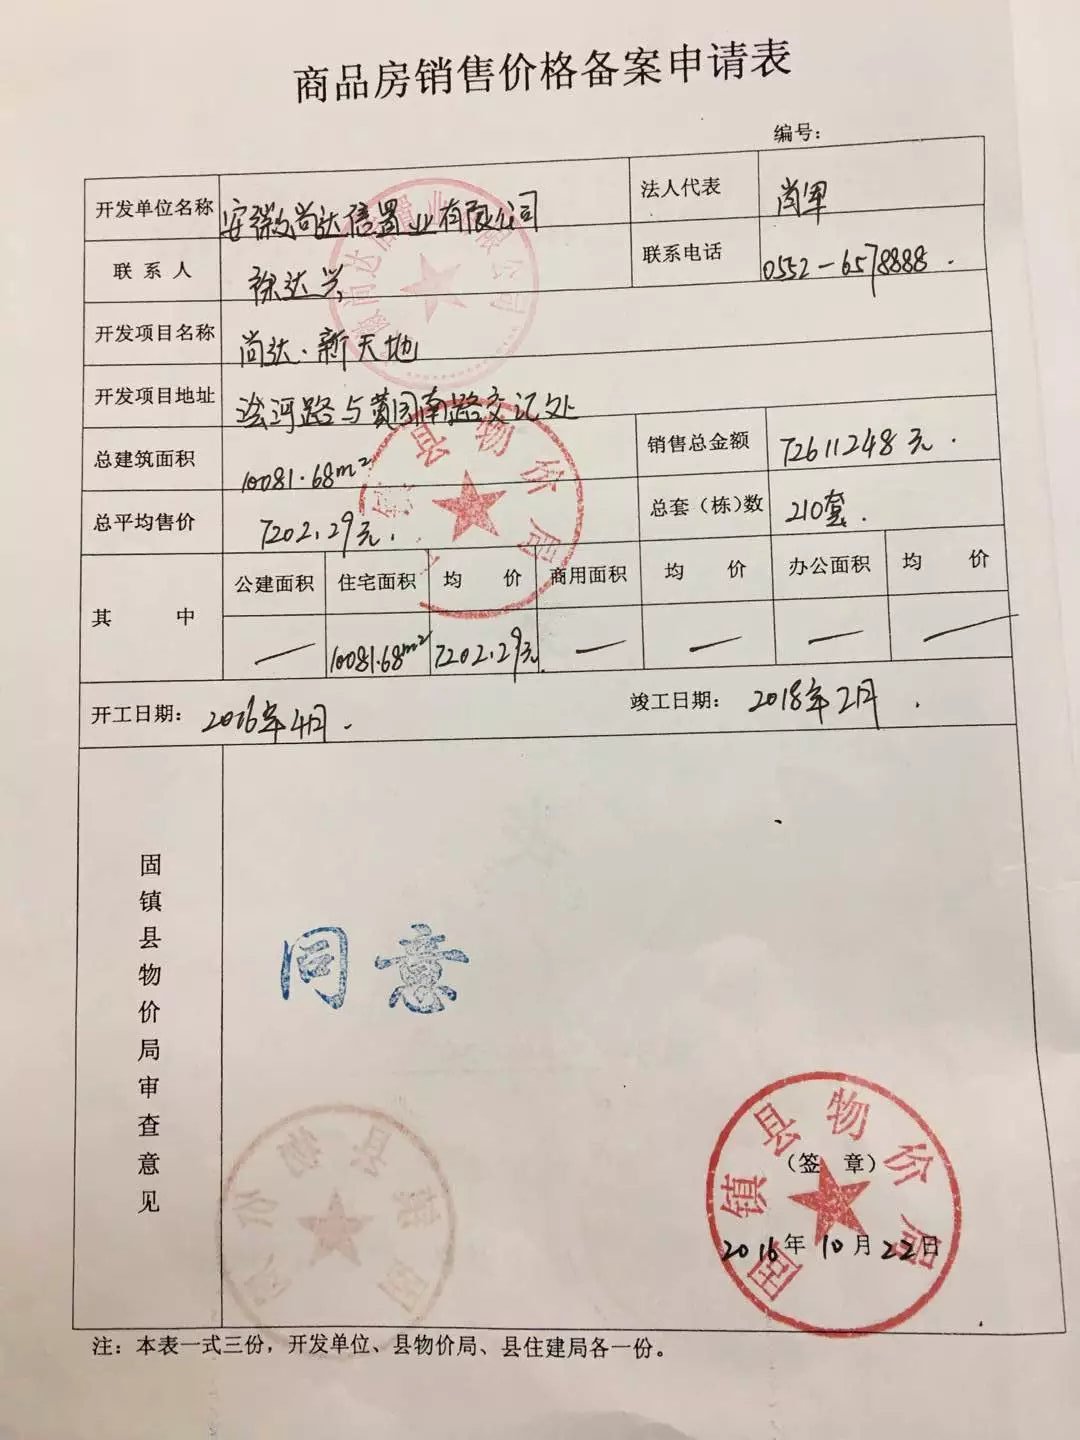 商品房销售价格备案申请表
编号：
开发单位名称 安徽尚达信置业有限公司 法人代表 肖军
联系人 徐达兴 联系电话 0552-6578888.
开发项目名称 尚达.新天地
开发项目地址 浍河路与黄园南路交汇处
总建筑面积 10081.68m² 销售总金额 72611248元.
总平均售价 7202.29元. 总套（栋）数 210套.
其中 公建面积 住宅面积 均价 商用面积 均价 办公面积 均价
— 10081.68m² 7202.29元. — — — —
开工日期：2016年4月. 竣工日期：2018年2月.
固镇县物价局审查意见
同意
固镇县物价局
（签 章）
2016年10月22日
注：本表一式三份，开发单位、县物价局、县住建局各一份。